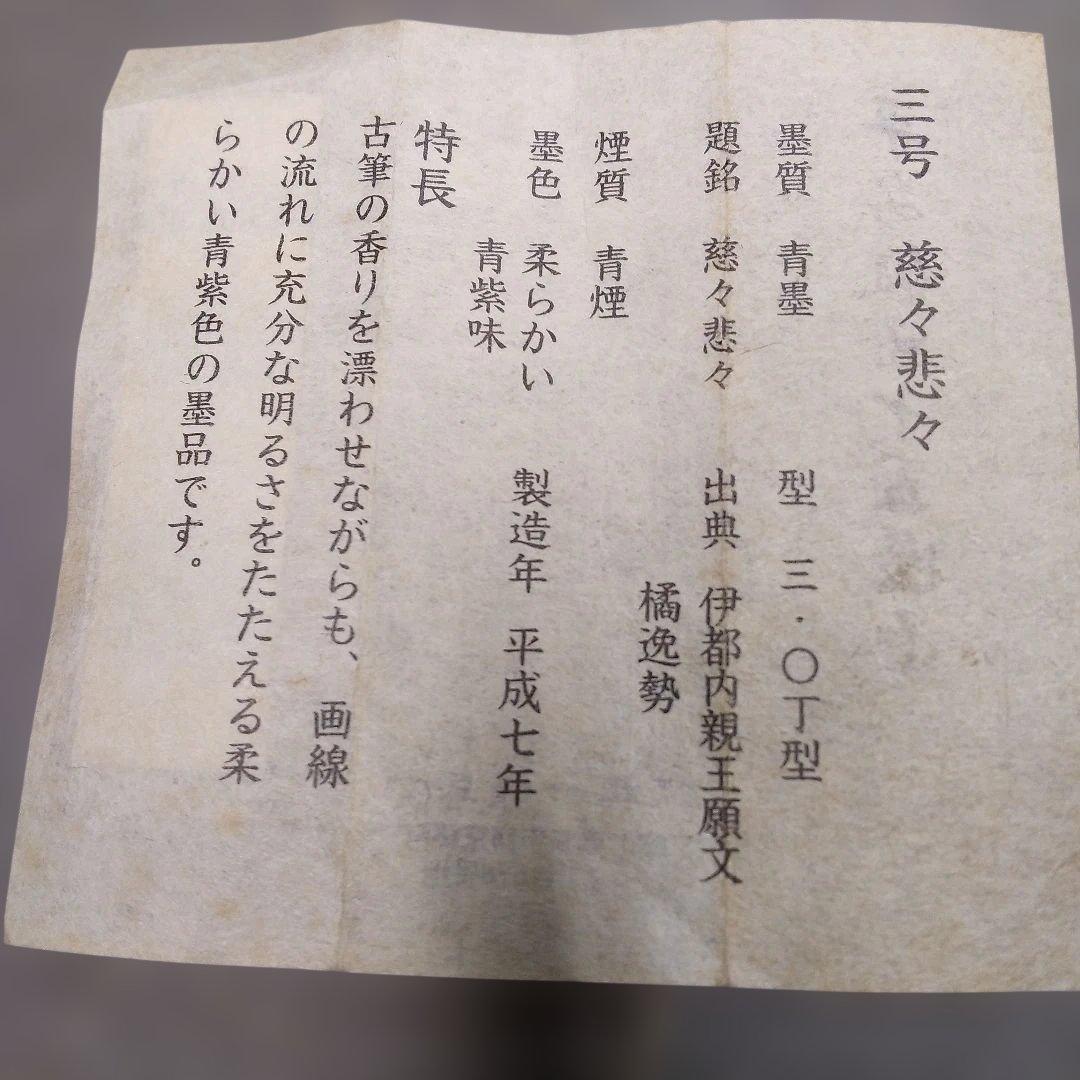 三号　慈々悲々
墨質　青墨　型　三・〇丁型
題銘　慈々悲々　出典　伊都内親王願文
橘逸勢
煙質　青煙
墨色　柔らかい　製造年　平成七年
青紫味
特長
古筆の香りを漂わせながらも、画線
の流れに充分な明るさをたたえる柔
らかい青紫色の墨品です。